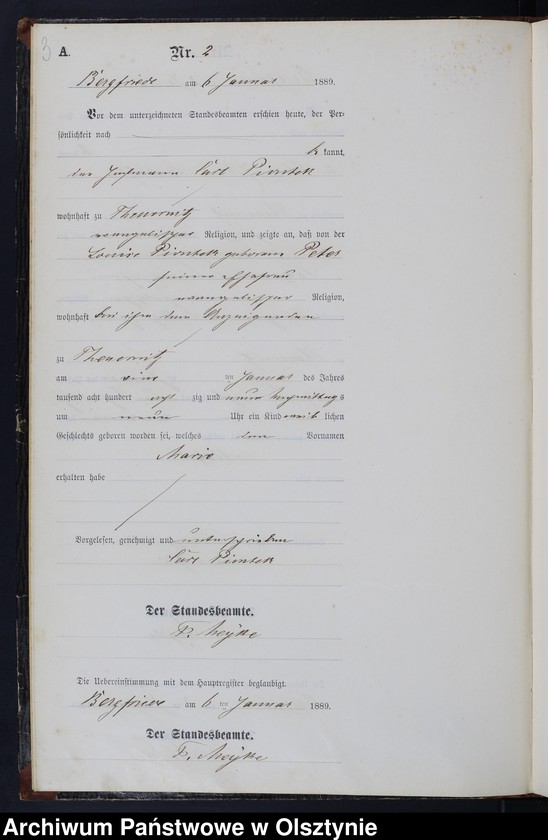 3
A. Nr. 2
Bergfriede am 6 Januar 1889.
Vor dem unterzeichneten Standesbeamten erschien heute, der Per-
sönlichkeit nach
be kannt,
der Carl Piontek
wohnhaft zu Theuernitz
evangelischer Religion, und zeigte an, daß von der
Louise Piontek geborene Peter
seiner Ehefrau
evangelischer Religion,
wohnhaft bei ihm dem Anzeigenden
zu Theuernitz
am ten Januar des Jahres
tausend acht hundert acht zig und neun Vormittags
um neun Uhr ein Kind weib lichen
Geschlechts geboren worden sei, welches den Vornamen
Marie
erhalten habe
Vorgelesen, genehmigt und unterschrieben
Carl Piontek
Der Standesbeamte.
Die Uebereinstimmung mit dem Hauptregister beglaubigt.
Bergfriede am 6 ten Januar 1889.
Der Standesbeamte.
Archiwum Państwowe w Olsztynie